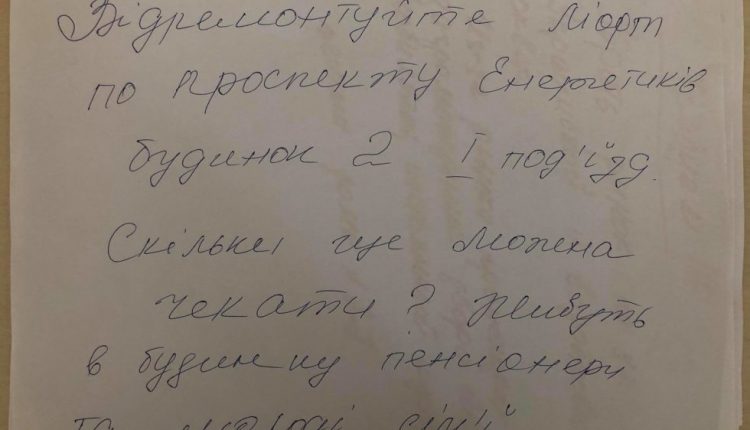 Відремонтуйте ліфт
по проспекту Енергетиків
будинок 2 I под'їзд.
Скільки ще можна
чекати? Живуть
в будинку пенсіонери
та сім'ї